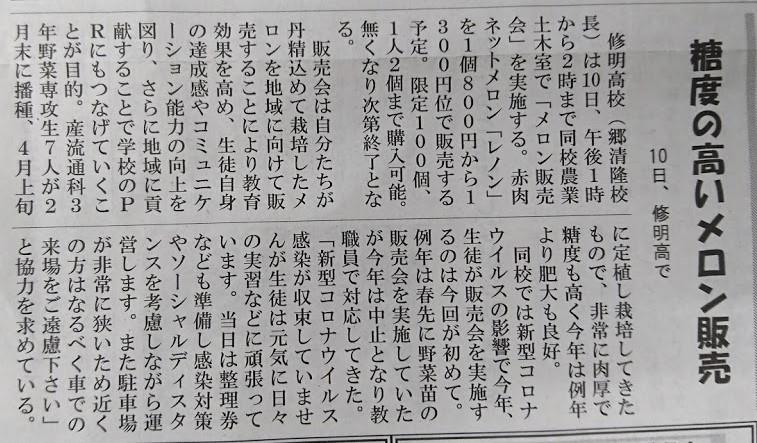 糖度の高いメロン販売
10日、修明高で
修明高校（郷清隆校
長）は10日、午後１時
から２時まで同校農業
土木室で「メロン販売
会」を実施する。赤肉
ネットメロン「レノン」
を１個８００円から１
３００円位で販売する
予定。限定１００個、
１人２個まで購入可能。
無くなり次第終了とな
る。
販売会は自分たちが
丹精込めて栽培したメ
ロンを地域に向けて販
売することにより教育
効果を高め、生徒自身
の達成感やコミュニケ
ーション能力の向上を
図り、さらに地域に貢
献することで学校のＰ
Ｒにもつなげていくこ
とが目的。産流通科３
年野菜専攻生７人が２
月末に播種、４月上旬
に定植し栽培してきた
もので、非常に肉厚で
糖度も高く今年は例年
より肥大も良好。
同校では新型コロナ
ウイルスの影響で今年、
生徒が販売会を実施す
るのは今回が初めて。
例年は春先に野菜苗の
販売会を実施していた
が今年は中止となり教
職員で対応してきた。
「新型コロナウイルス
感染が収束していませ
んが生徒は元気に日々
の実習などに頑張って
います。当日は整理券
なども準備し感染対策
やソーシャルディスタ
ンスを考慮しながら運
営します。また駐車場
が非常に狭いため近く
の方はなるべく車での
来場をご遠慮下さい」
と協力を求めている。